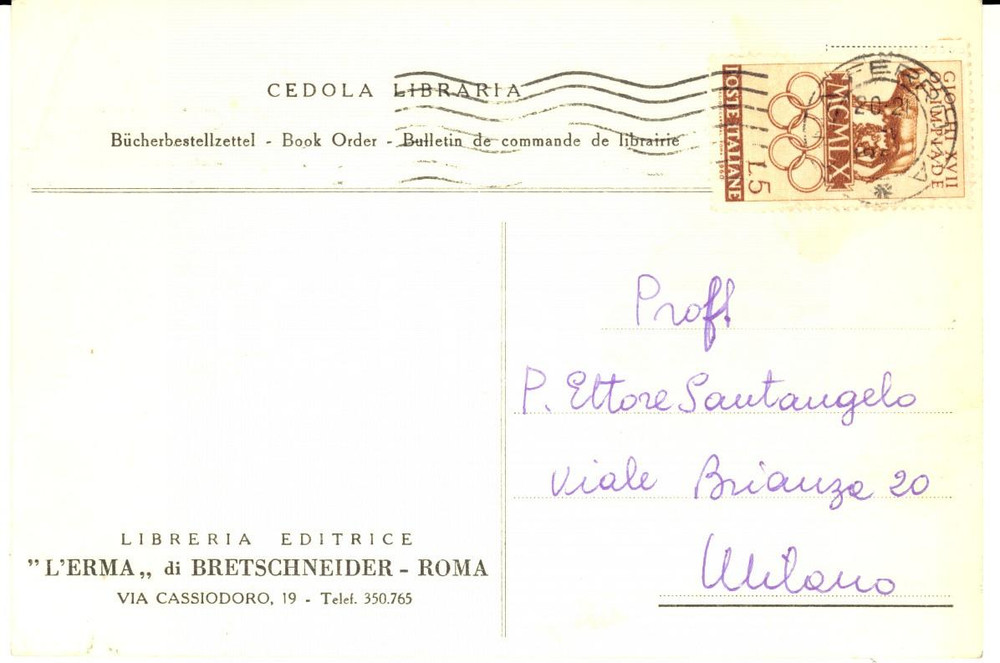 CEDOLA LIBRARIA
Bücherbestellzettel - Book Order - Bulletin de commande de librairie
GIOCHI XVII
OLIMPIADE
MCMLX
L.5
POSTE ITALIANE
Prof.
P. Ettore Santangelo
Viale Brianza 20
Milano
LIBRERIA EDITRICE
"L'ERMA„ di BRETSCHNEIDER - ROMA
VIA CASSIODORO, 19 - Telef. 350.765